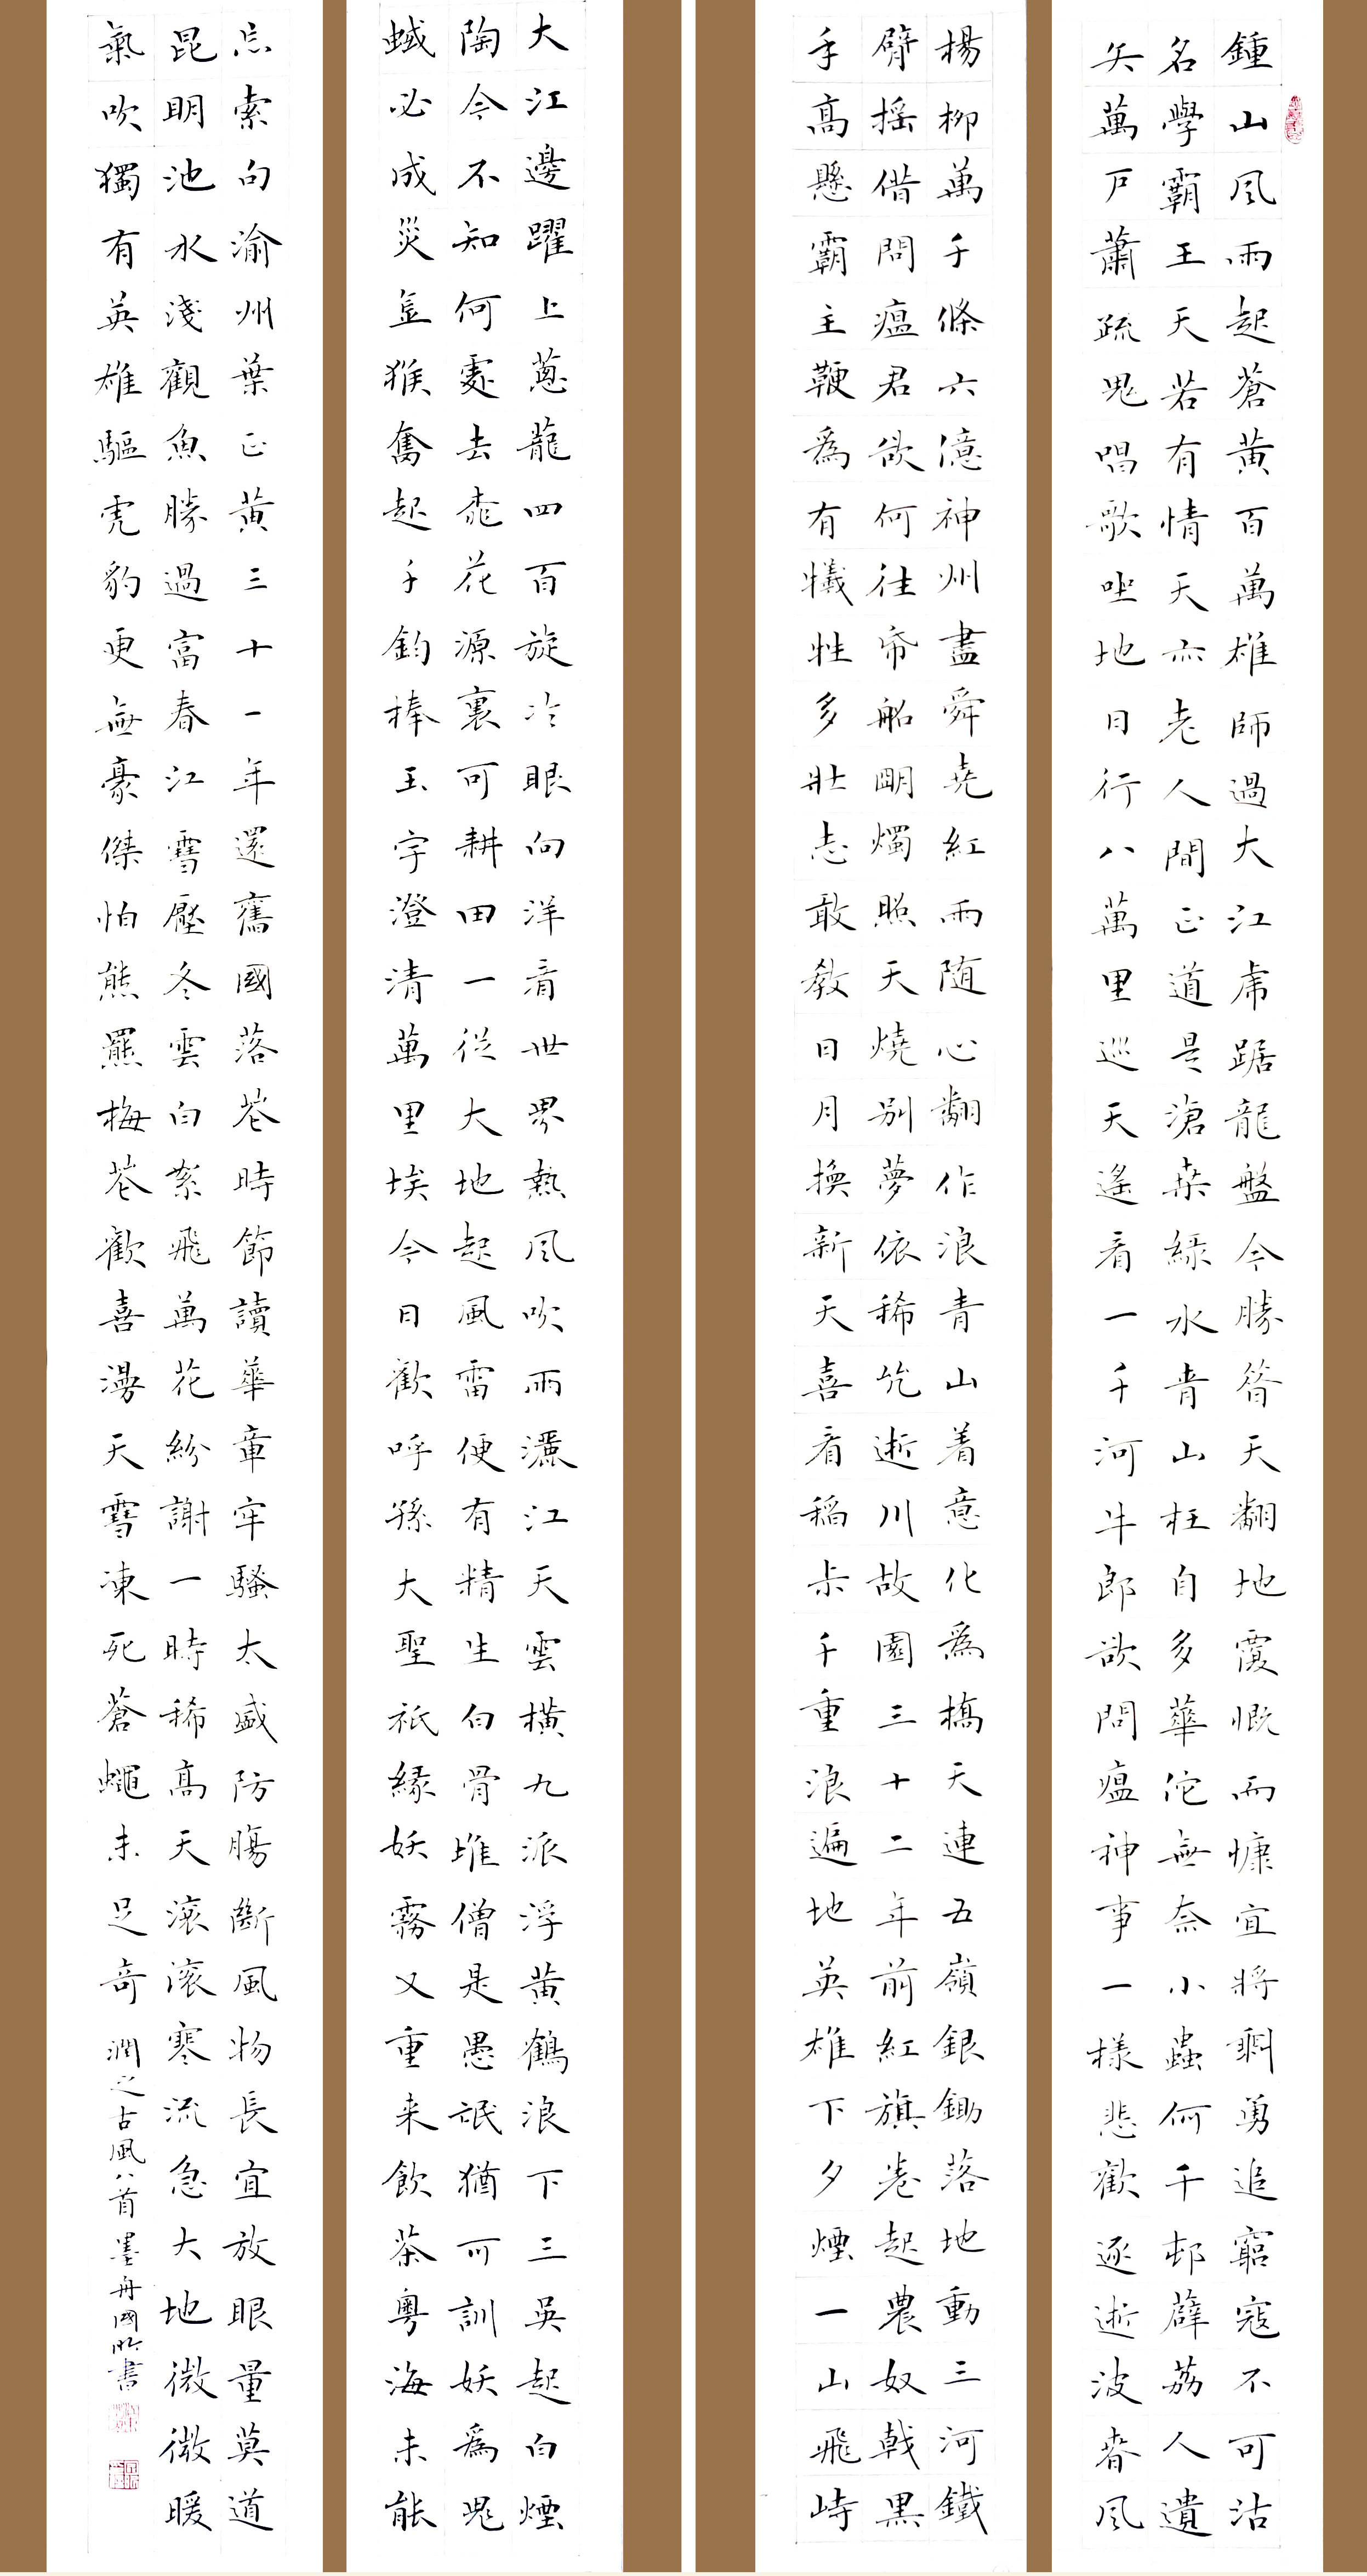 鍾山風雨起蒼黃百萬雄師過大江虎踞龍盤今勝昝天翻地覆慨而慷宜將剩勇追窮寇不可沽
名學霸王天若有情天亦老人間正道是滄桑綠水青山枉自多華佗無奈小蟲何千邨薜荔人遺
矢萬戶蕭疏鬼唱歌坐地日行八萬里巡天遙看一千河牛郎欲問瘟神事一樣悲歡逐逝波春風
楊柳萬千條六億神州盡舜堯紅雨随心翻作浪青山着意化為橋天連五嶺銀鋤落地動三河鐵
臂摇借問瘟君欲何往帋船明燭照天燒别夢依稀咒逝川故園三十二年前紅旗卷起農奴戟黑
手高懸霸主鞭為有犧牲多壯志敢教日月換新天喜看稻尗千重浪遍地英雄下夕煙一山飛峙
大江邊躍上蔥蘢四百旋冷眼向洋看世界熱風吹雨灑江天雲橫九派浮黃鶴浪下三吳起白煙
陶令不知何處去桃花源裏可耕田一從大地起風雷便有精生白骨堆僧是愚氓猶可訓妖為鬼
蜮必成災金猴奮起千鈞棒玉宇澄清萬里埃今日歡呼孫大聖祇緣妖霧又重来飲茶粵海未能
忘索句渝州葉正黃三十一年還舊國落花時節讀華章牢騷太盛防腸斷風物長宜放眼量莫道
昆明池水淺觀魚勝過富春江雪壓冬雲白絮飛萬花紛謝一時稀高天滾滾寒流急大地微微暖
氣吹獨有英雄驅虎豹更無豪傑怕熊羆梅花歡喜漫天雪凍死蒼蠅未足奇 潤之古風八首墨舟國昕書